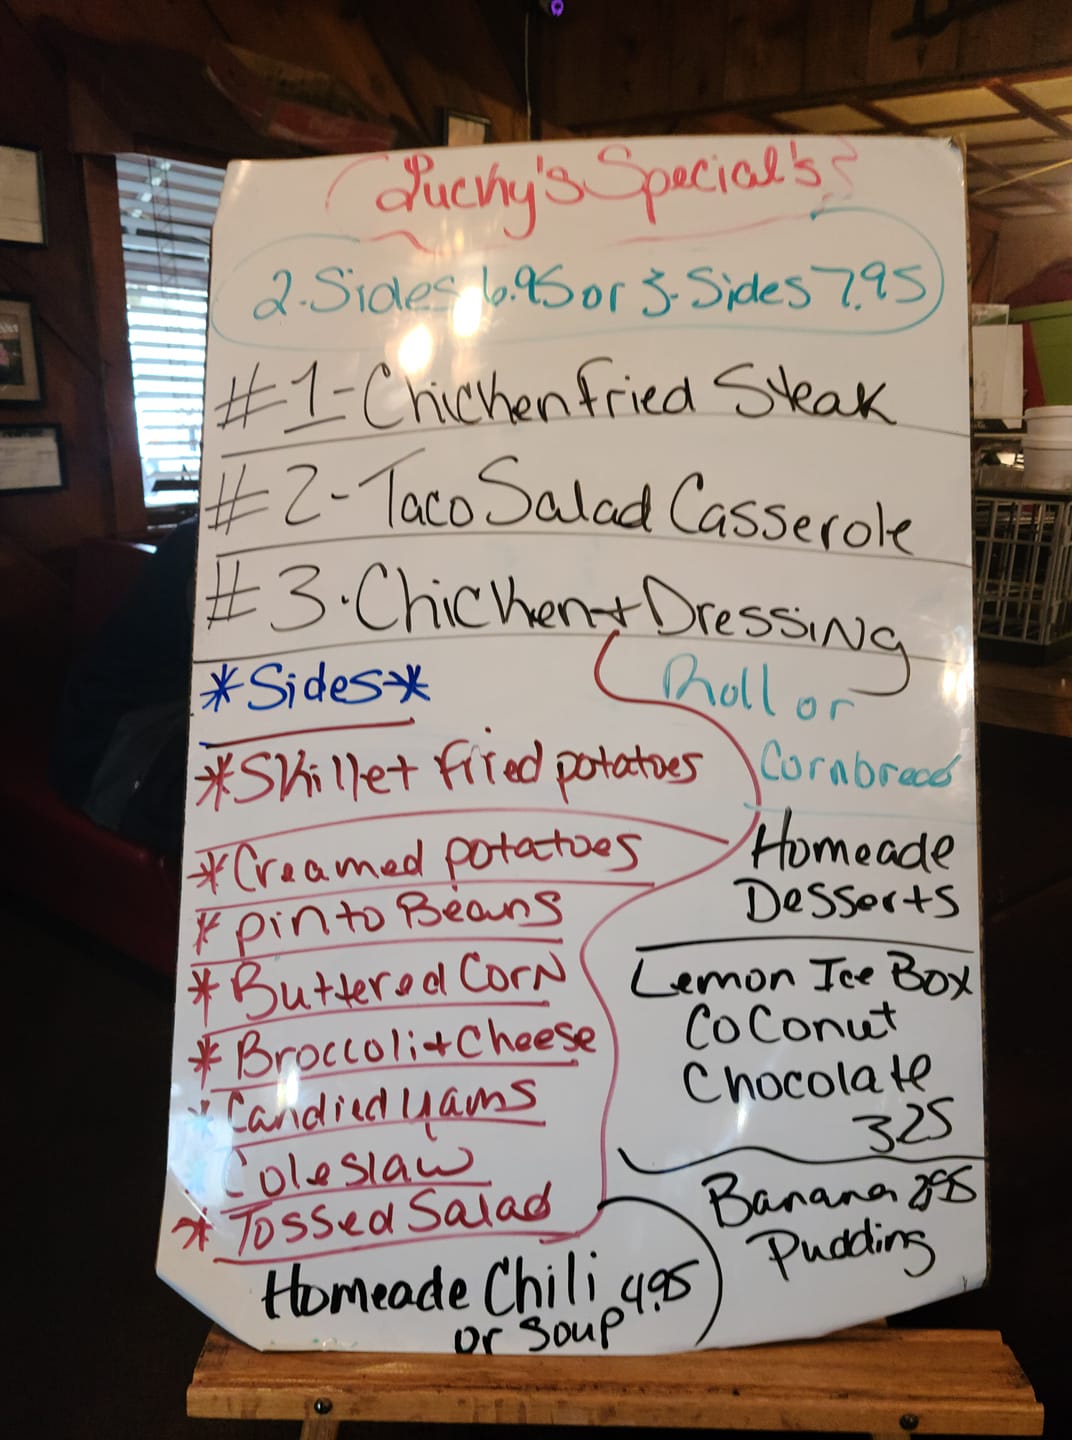 Lucky's Special's
2-Sides 6.95 or 3-Sides 7.95
#1-Chicken Fried Steak
#2-Taco Salad Casserole
#3-Chicken + Dressing
*Sides*
*Skillet Fried potatoes
*Creamed potatoes
*pinto Beans
*Buttered Corn
*Broccoli + Cheese
*Candied yams
Coleslaw
*Tossed Salad
Roll or
Cornbread
Homeade
Desserts
Lemon Ice Box
CoConut
Chocolate
325
Banana 295
Pudding
Homeade Chili 4.95
or Soup